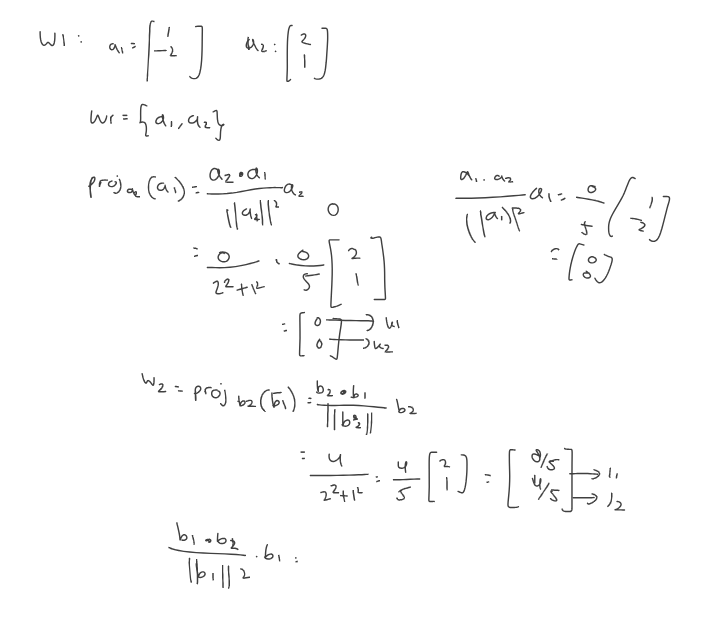 W1 : a₁ = [1 -2] a₂ : [2 1]
W1 = {a₁, a₂}
proj a₂ (a₁) = a₂•a₁ / ||a₂||² a₂
0
= 0 / 2²+1² . 0/5 [2 1]
= [0 0] → u1 → u2
a₁.. a₂ / ||a₁||² a₁ = 0/5 [1 -2]
= [0 0]
W₂ = proj b₂ (b₁) = b₂•b₁ / ||b₂²|| b₂
= 4 / 2²+1² = 4/5 [2 1] = [8/5 4/5] → l₁ → l₂
b₁•b₂ / ||b₁||2 . b₁ :